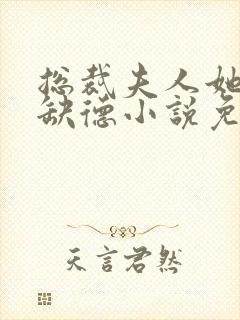 总裁夫人她
缺德小説免
天言君然